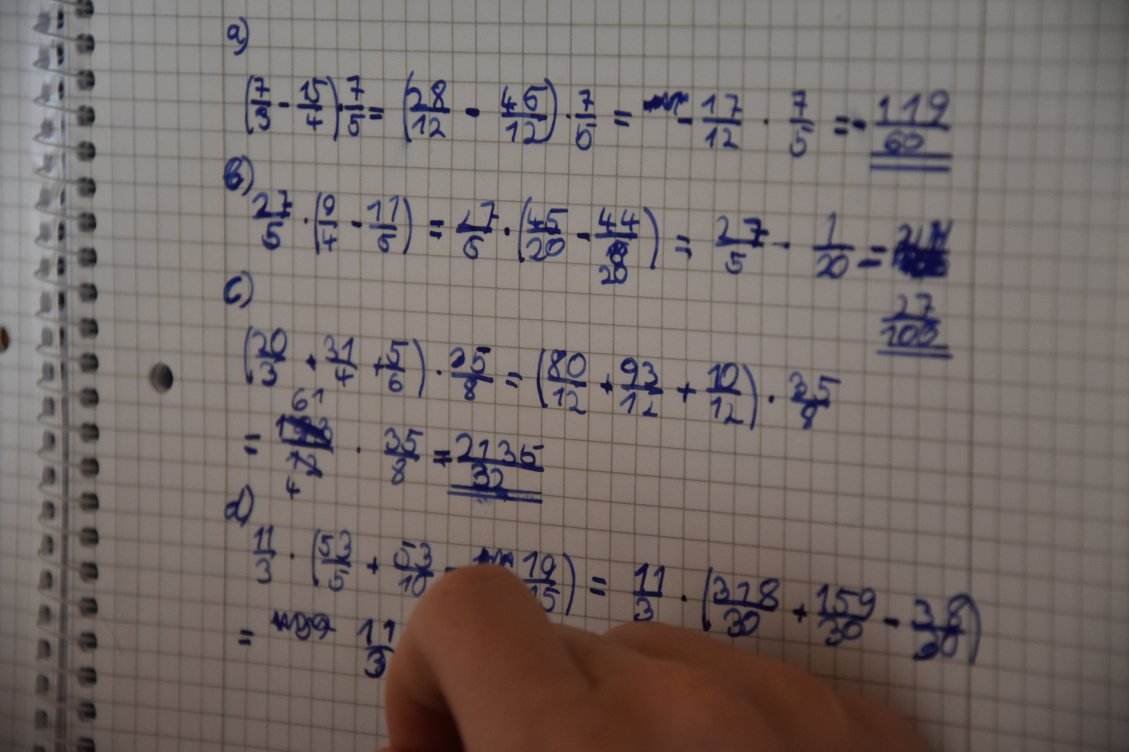 a)
(7/3 - 15/4) · 7/5 = (28/12 - 45/12) · 7/5 = - 17/12 · 7/5 = - 119/60
b)
27/5 · (9/4 - 11/5) = 27/5 · (45/20 - 44/20) = 27/5 · 1/20 =
27/100
c)
(20/3 + 31/4 + 5/6) · 35/8 = (80/12 + 93/12 + 10/12) · 35/8
= 61/4 · 35/8 = 2135/32
d)
11/3 · (53/5 + 53/10 - 19/15) = 11/3 · (318/30 + 159/30 - 38/30)
= 11/3